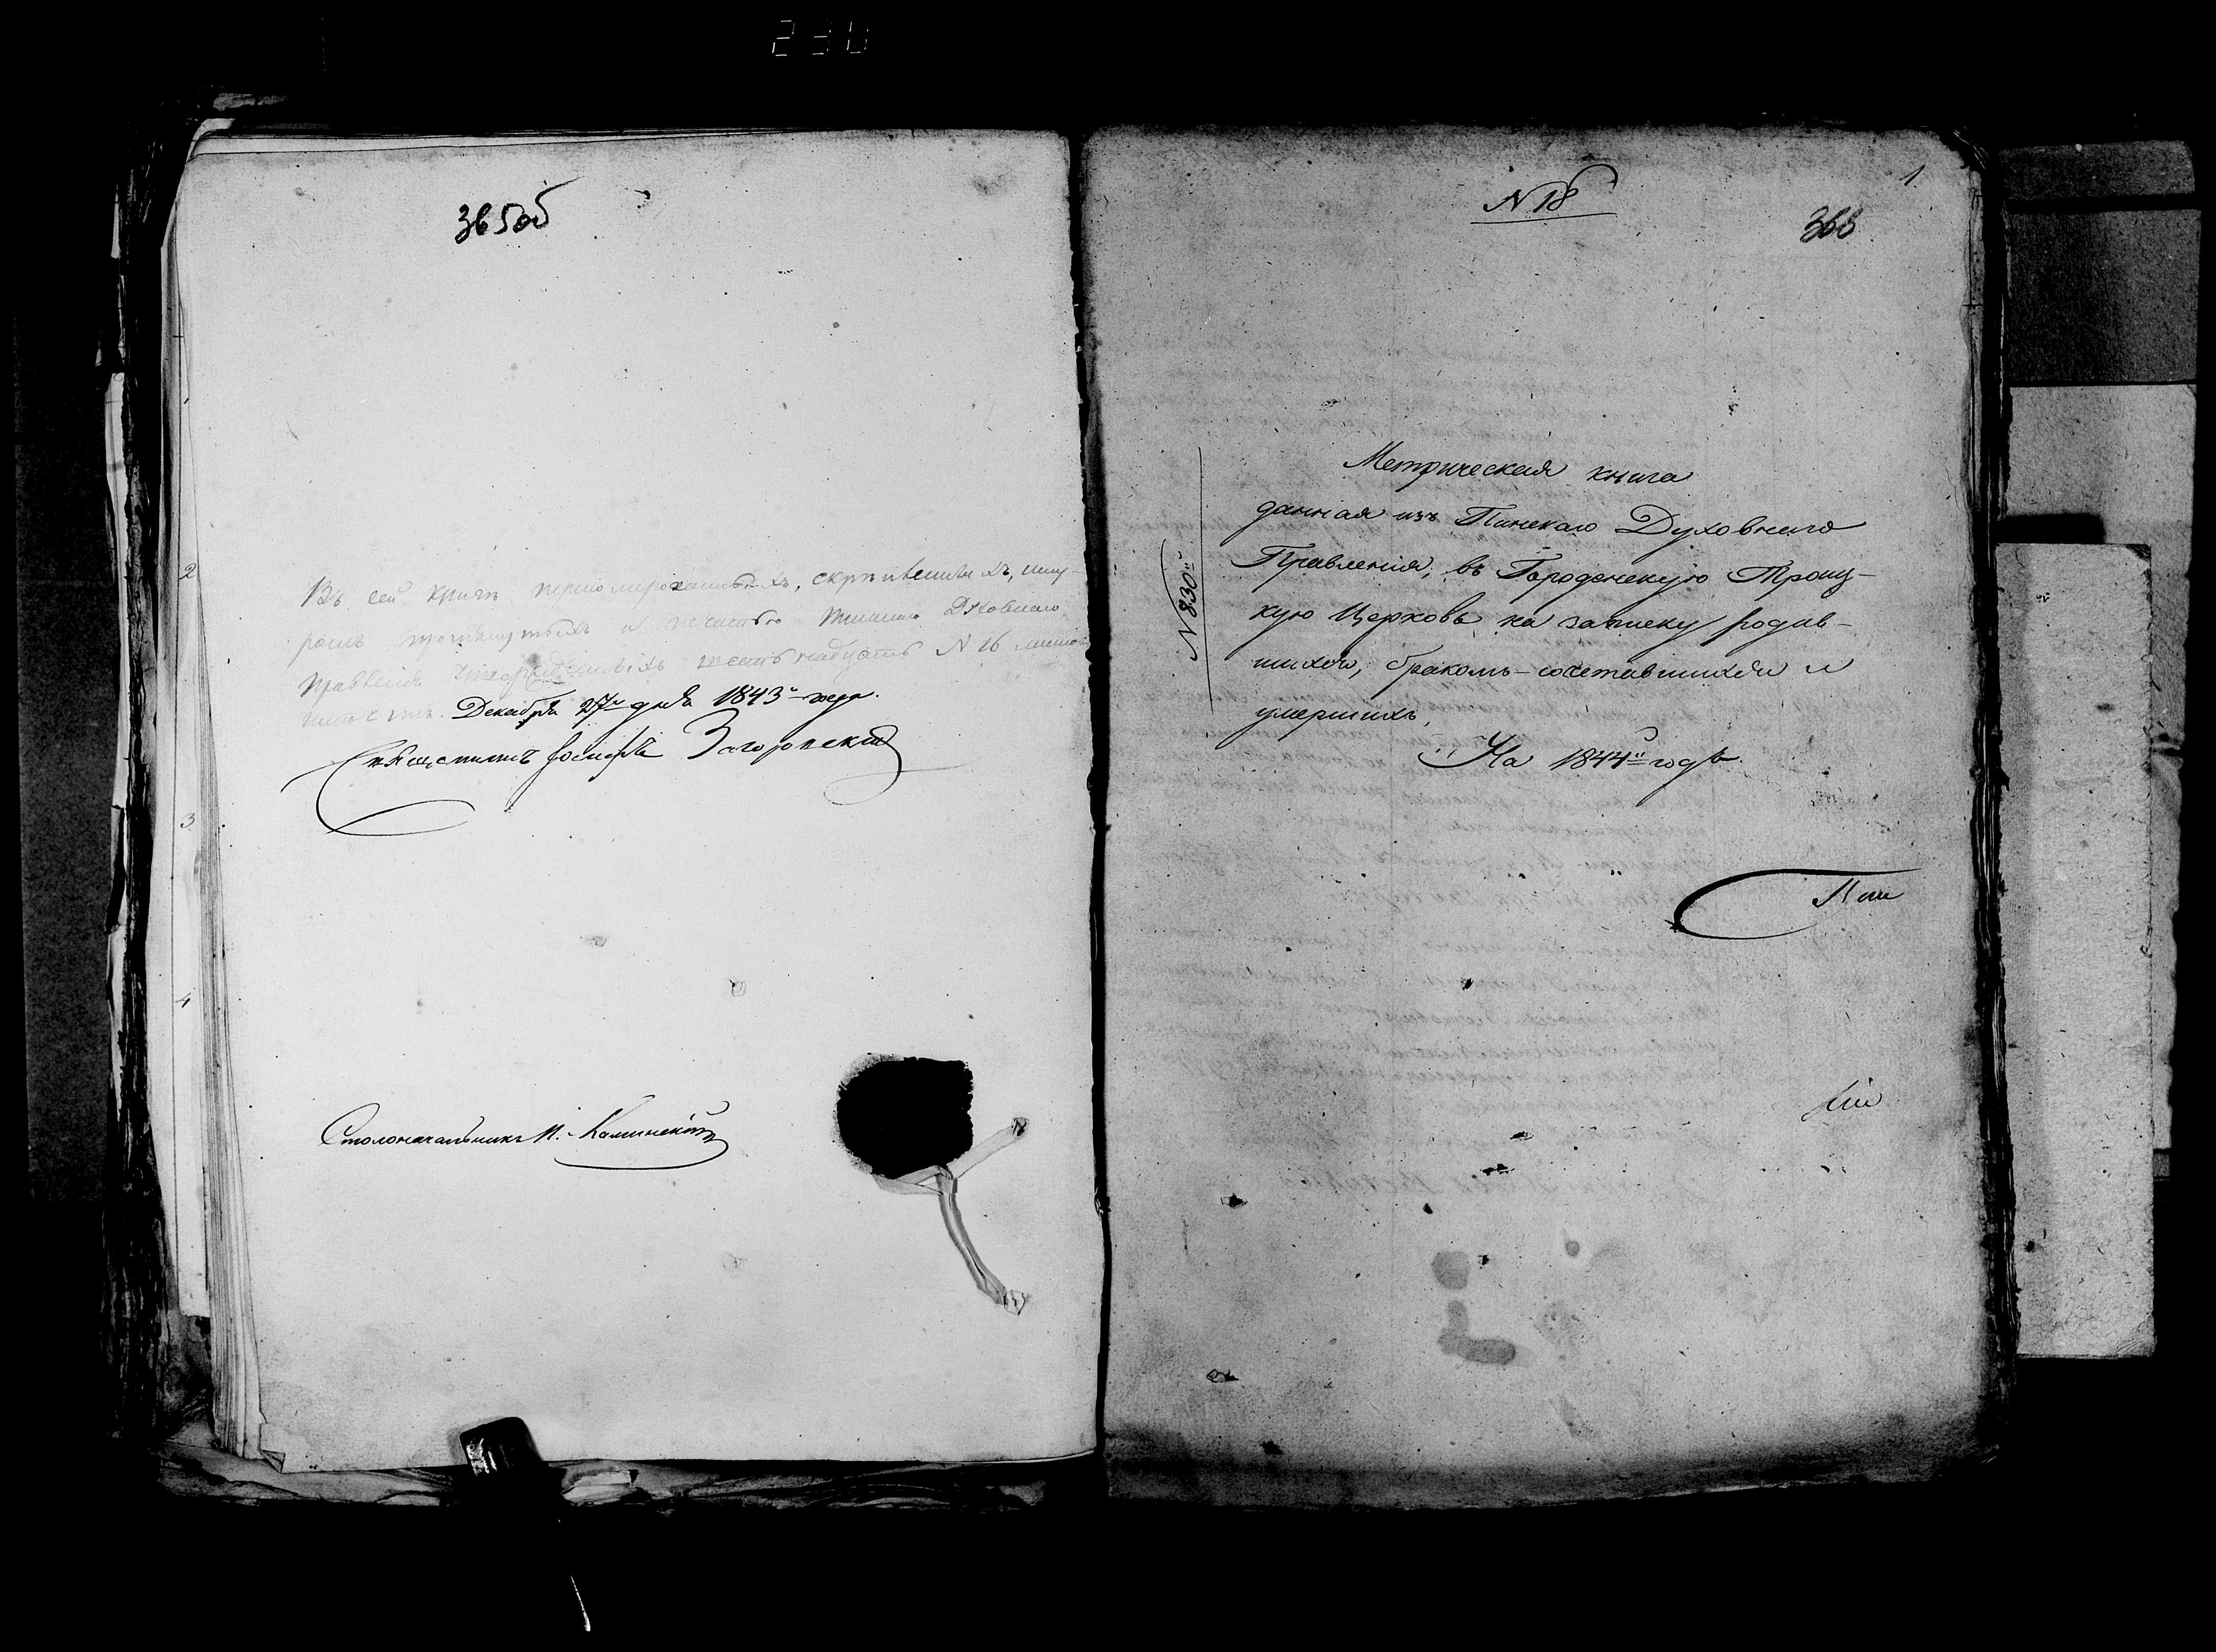 230
365об
Въ сей книгѣ перномерованныхъ, скрѣпленныхъ, шну-
ромъ прошнурныхъ и печатью Пинскаго Духовнаго
Правленія утвержденныхъ шестьнадцать N 16 листов
Декабря 27го дня 1843го года.
Священникъ Іосифъ Загоровскій
Столоначальникъ И. Каминскій
2
3
4
N 18
1
366
N 830й
Метрическая книга
данная изъ Пинскаго Духовнаго
Правленія, въ Городенскую Троиц-
кую Церковь на записку родив-
шихся, бракомъ-сочетавшихся и
умершихъ,
На 1844й годъ.